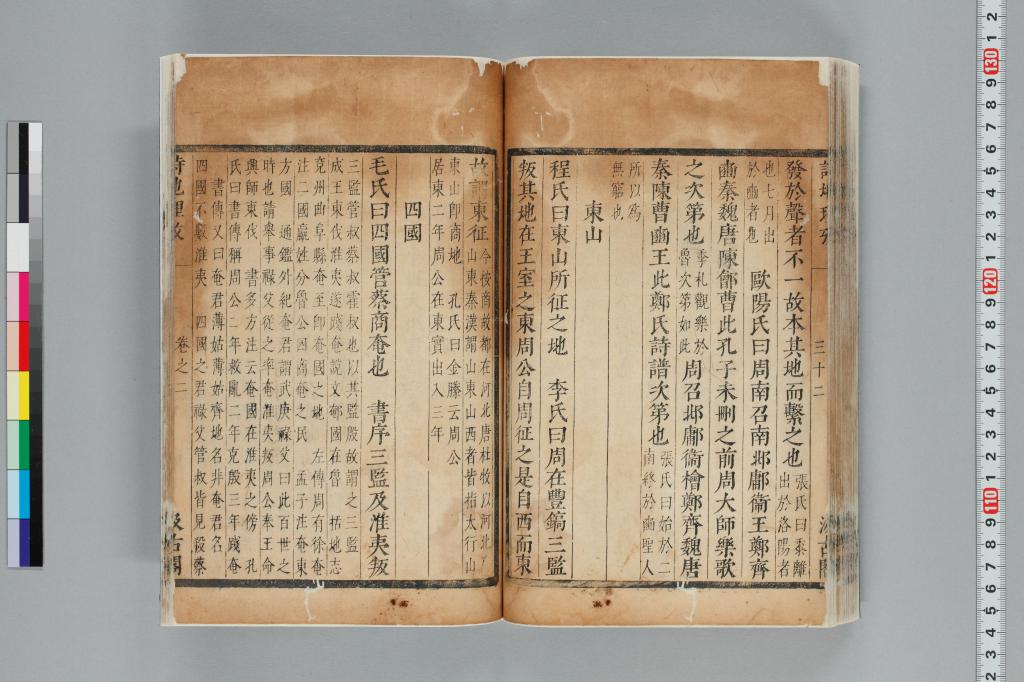 發於聲者不一故本其地而繫之也張氏曰黍離出於洛陽者
也七月出於豳者也 歐陽氏曰周南召南邶鄘衞王鄭齊
豳秦魏唐陳鄶曹此孔子未刪之前周大師樂歌
之次第也季札觀樂於魯次第如此周召邶鄘衞檜鄭齊魏唐
秦陳曹豳王此鄭氏詩譜次第也張氏曰始於二南終於豳聖人
所以為無窮也
東山
程氏曰東山所征之地 李氏曰周在豐鎬三監
叛其地在王室之東周公自周征之是自西而東
故謂東征今按商故都在河北唐杜牧以河北
山東秦漢謂山東山西者皆指太行山
東山卽商地 孔氏曰金縢云周公
居東二年周公在東實出入三年
四國
毛氏曰四國管蔡商奄也 書序三監及淮夷叛
三監管叔蔡叔霍叔也以其監殷故謂之三監
成王東伐淮夷遂踐奄說文郁國在魯 括地志
兗州曲阜縣奄至卽奄國之地 左傳周有徐奄
注二國嬴姓分魯公因商奄之民 孟子注奄東
方國 通鑑外紀奄君謂武庚祿父曰此百世之
時也請舉事祿父從之率奄淮夷叛周公奉王命
興師東伐 書多方注云奄國在淮夷之傍 孔
氏曰書傳稱周公二年救亂二年克殷三年踐奄
書傳又曰奄君薄姑薄姑齊地名非奄君名
四國不數淮夷 四國之君祿父管叔皆見殺蔡
卷之二
三十二
汲古閣